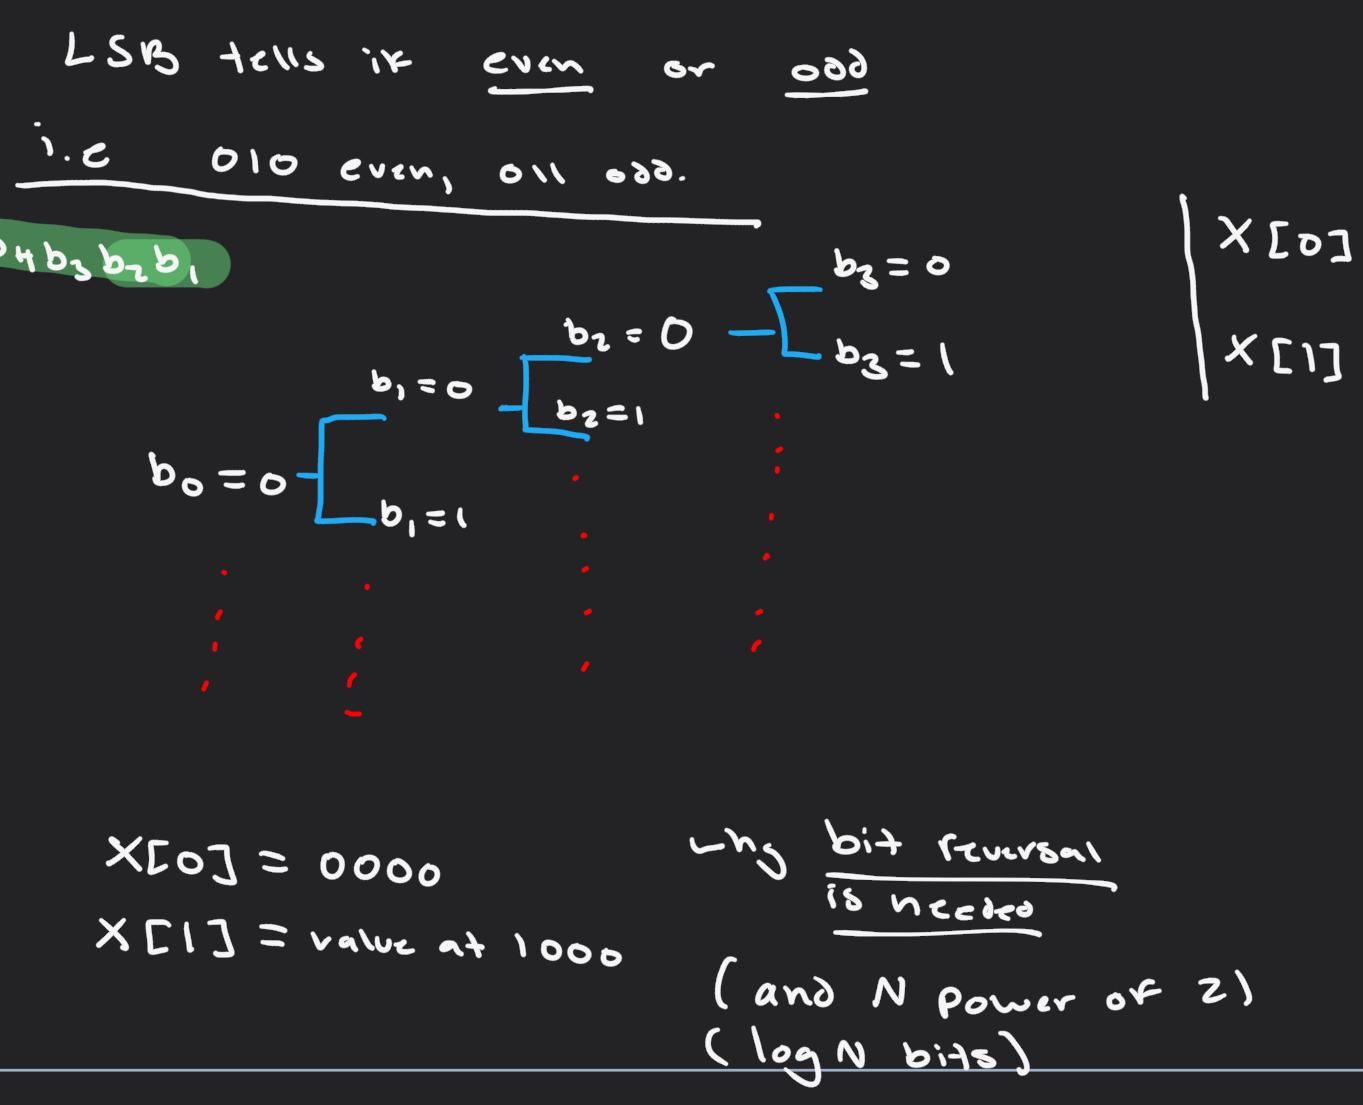 LSB tells if even or odd
i.e 010 even, 011 odd.
b4b3b2b1
b3=0
b3=1
b2=0
b2=1
b1=0
b1=1
b0=0
X[0]
X[1]
X[0] = 0000
X[1] = value at 1000
why bit reversal
is needed
(and N power of 2)
(log N bits)